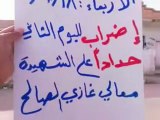 الأربعاء
إضراب لليوم الثاني
حداداً على الشهيدة
معالي غازي الصالح